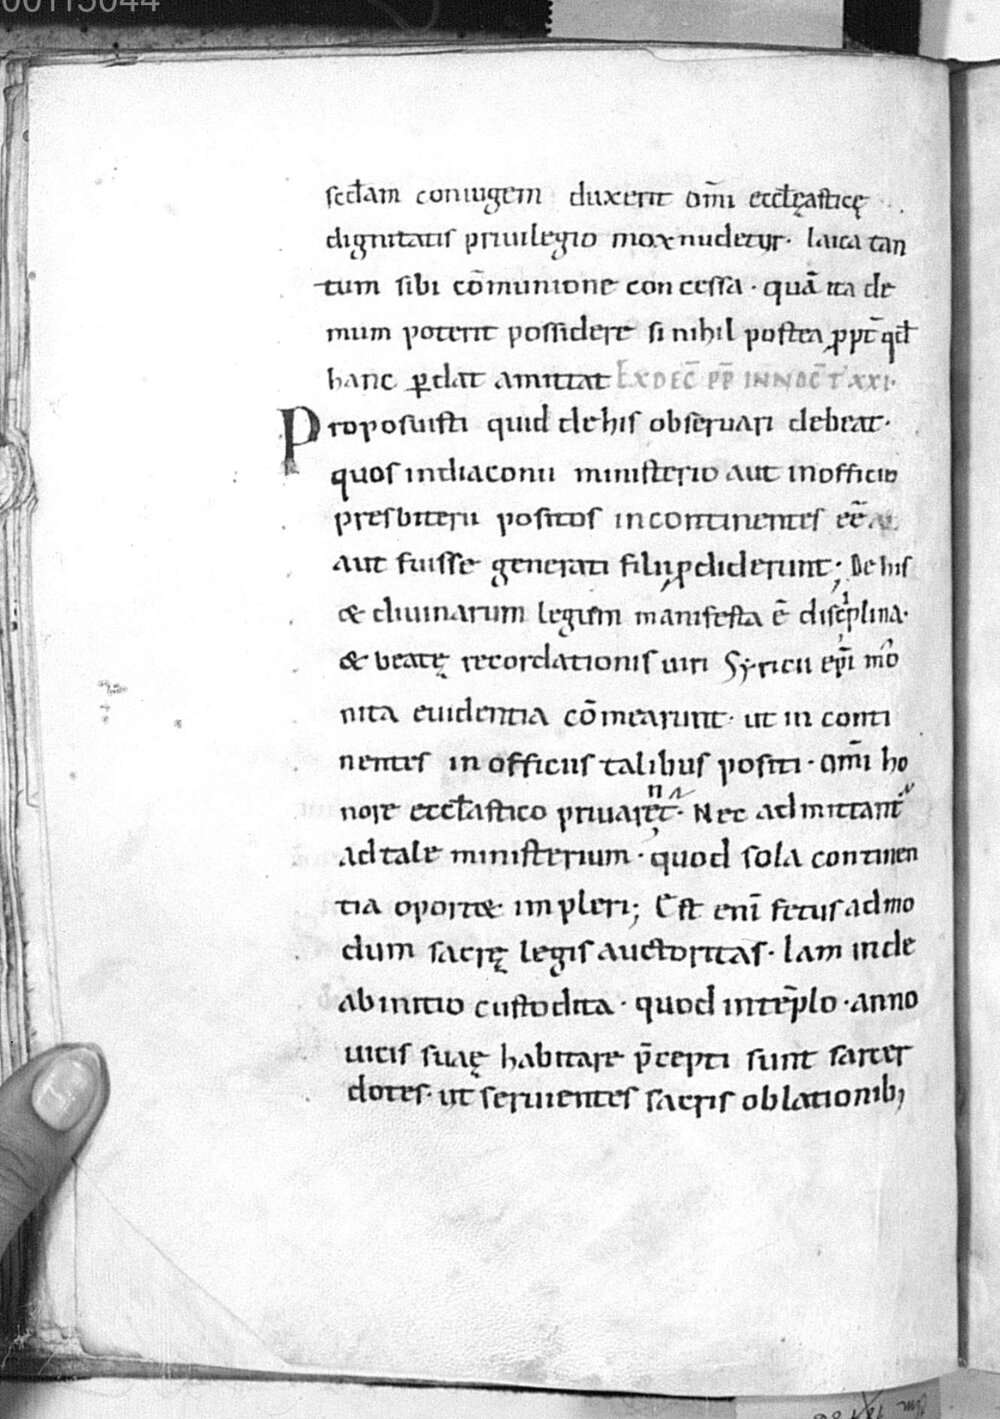 00115044
scđam coniugem duxerit om̄i eccƚęasticę
dignitatis priuilegio mox nudetur· laica tan
tum sibi cōmunione concessa· quā ita de
mum poterit possidere si nihil postea ppt̄ qđ
hanc ꝑdat amittat EX DEC̄ P̄P̄ INNOC̄ T XXI·
Proposuisti quid de his obseruari debeat·
quos in diaconii ministerio aut in officio
presbiterii positos incontinentes eē
aut fuisse generati filii ꝓdiderunt; De his
& diuinarum legum manifesta ē disciplina·
& beatę recordationis uiri Syricii ep̄i mo
nita euidentia cōmearunt· ut in conti
nentes in officiis talibus positi· om̄i ho
nore eccƚastico priuarent· Nec admittant
ad tale ministerium· quod sola continen
tia oport& impleri; Est enī fetus admo
dum sacrę legis auctoritas· Iam inde
ab initio custodita· quod in tēplo· anno
uicis suaę habitare p̄cepti sunt sacer
dotes· ut seruientes sacris oblationibꝫ